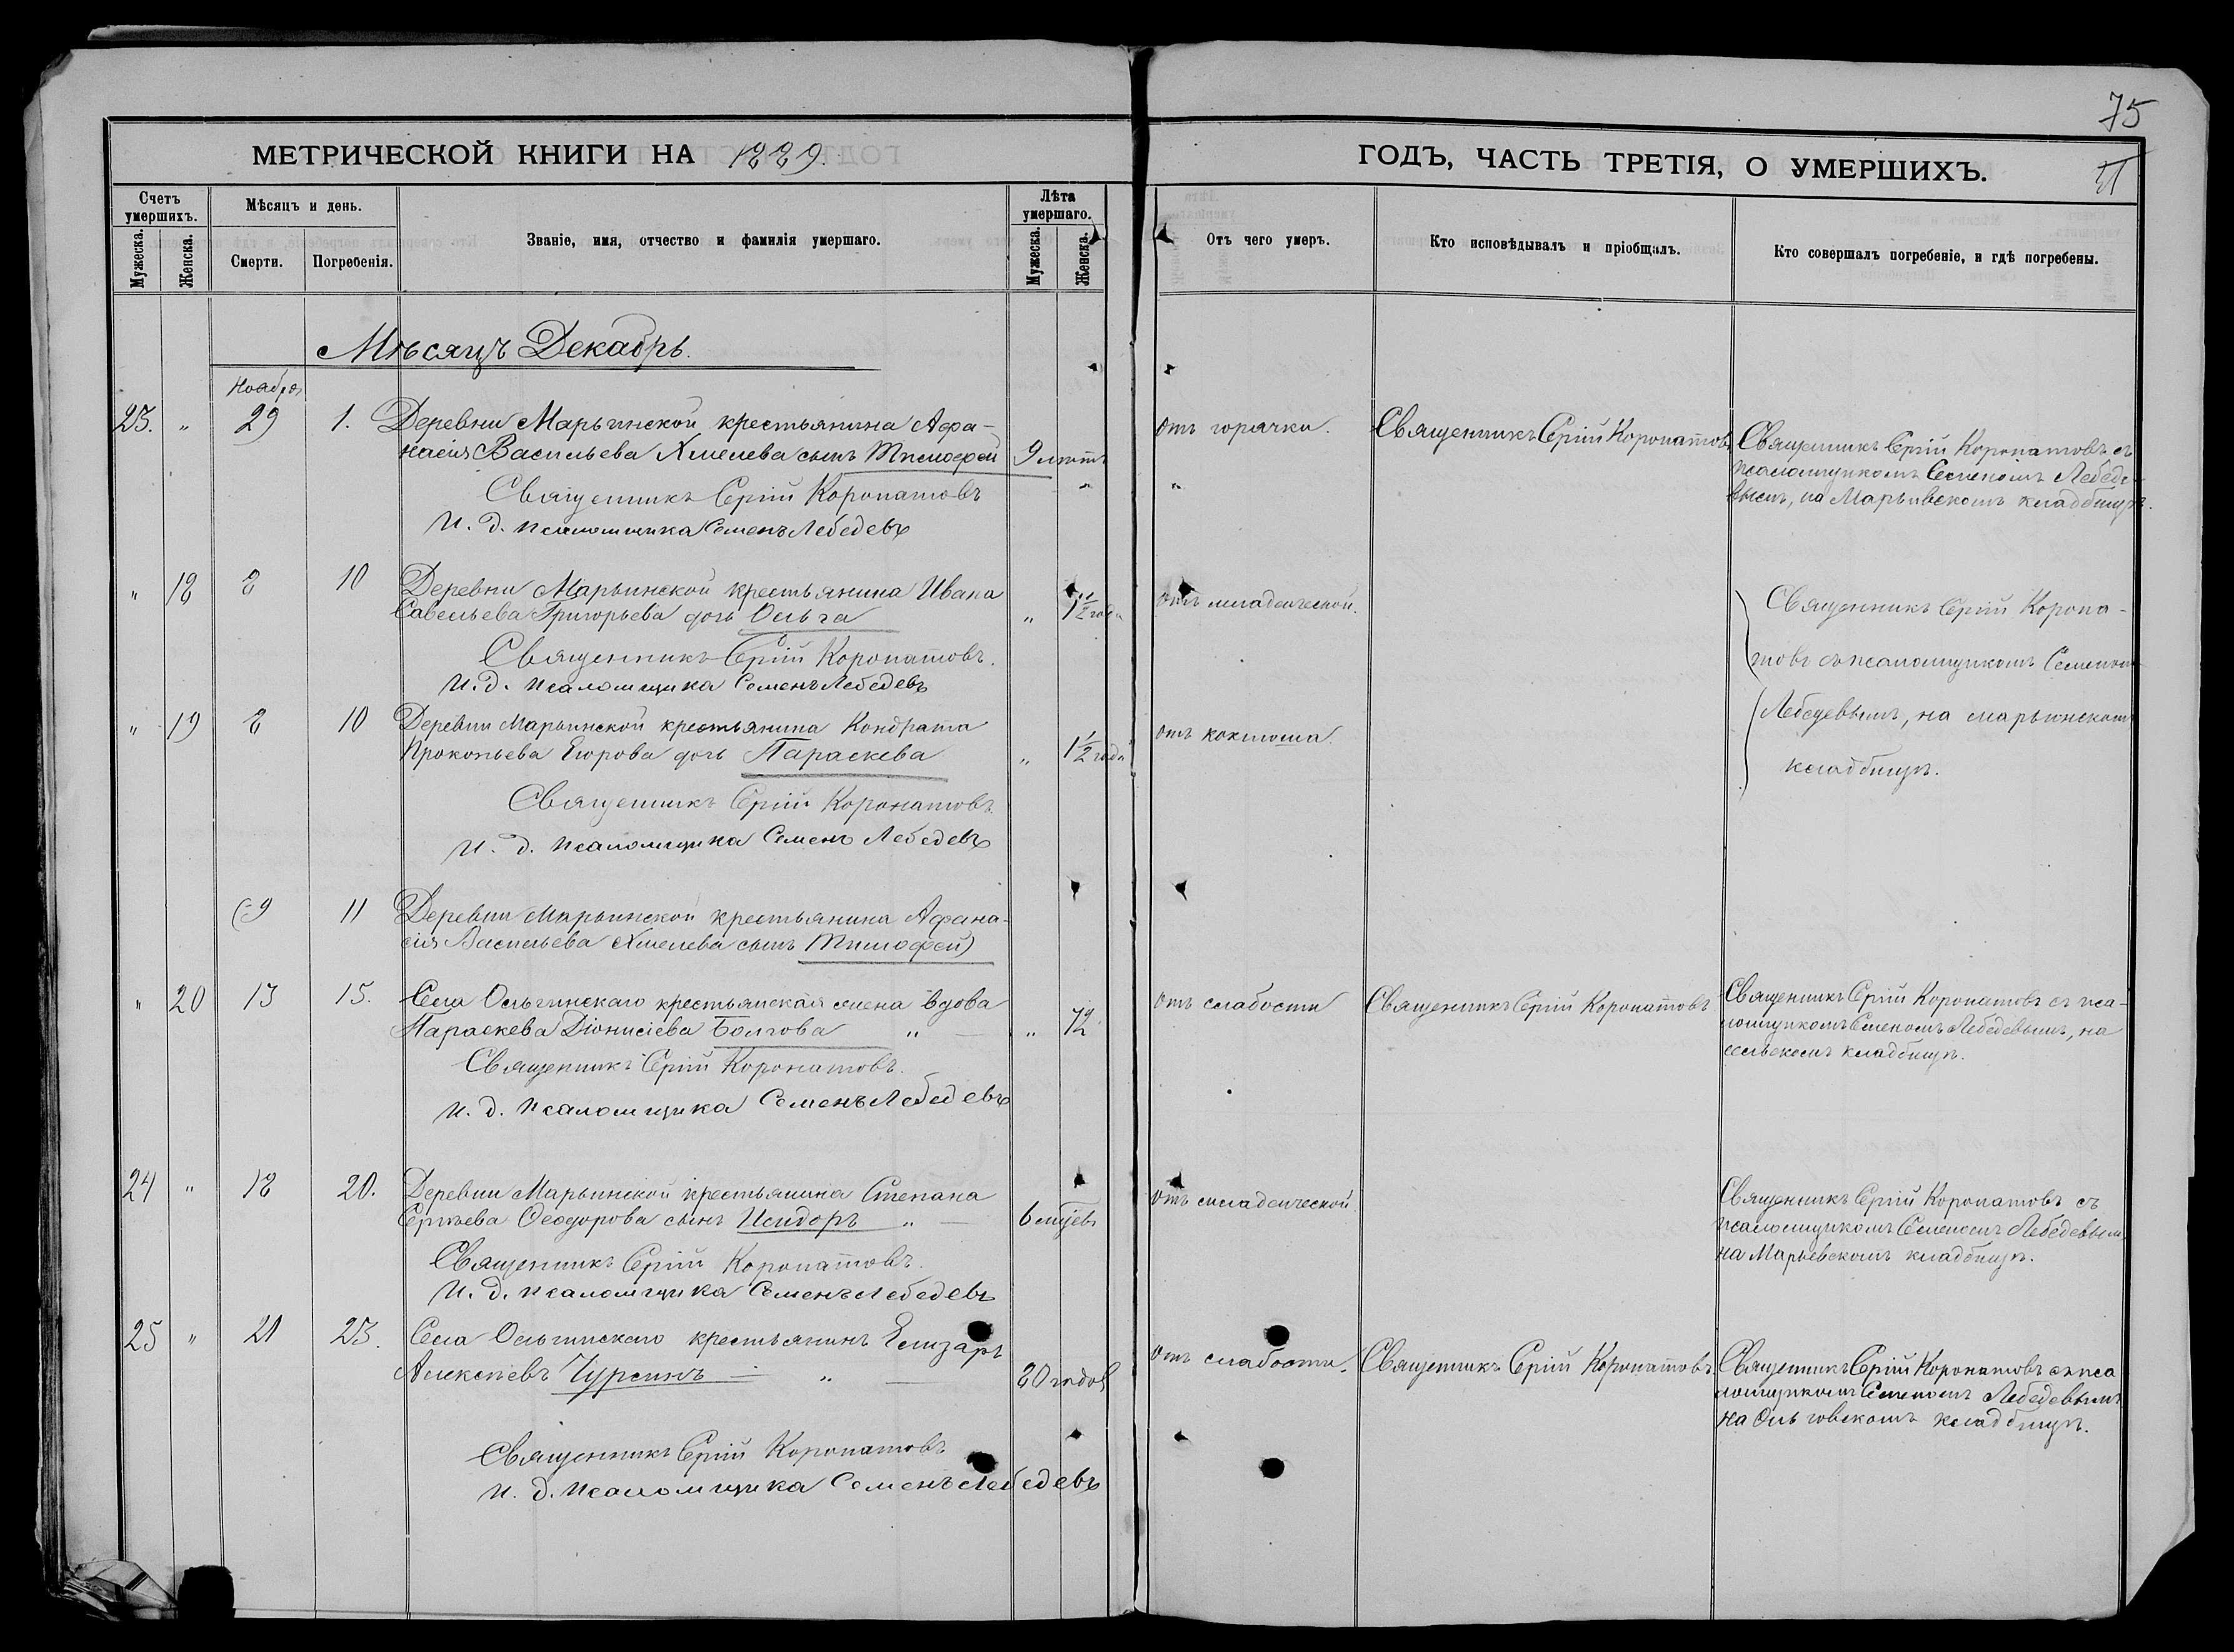 75
51
МЕТРИЧЕСКОЙ КНИГИ НА 1889.
ГОДЪ, ЧАСТЬ ТРЕТІЯ, О УМЕРШИХЪ.
Счетъ умершихъ.
Мужеска.
Женска.
Мѣсяцъ и день.
Смерти.
Погребенія.
Званіе, имя, отчество и фамилія умершаго.
Лѣта умершаго.
Мужеска.
Женска.
Отъ чего умеръ.
Кто исповѣдывалъ и пріобщалъ.
Кто совершалъ погребеніе, и гдѣ погребены.
Мѣсяцъ Декабрь.
Ноября
23. " 29 1. Деревни Марьинской крестьянина Афа-
насія Васильева Хмелева сынъ Тимофей 9 лѣтъ
Священникъ Сергій Коронатовъ
И. д. псаломщика Семенъ Лебедевъ
отъ горячки.
Священникъ Сергій Коронатовъ
Священникъ Сергій Коронатовъ съ
псаломщикомъ Семеномъ Лебеде-
вымъ, на Марьинскомъ кладбищѣ.
" 18 8 10 Деревни Марьинской крестьянина Ивана
Савельева Григорьева дочь Ольга " 1½ года
Священникъ Сергій Коронатовъ.
И. д. псаломщика Семенъ Лебедевъ
отъ младенческой.
Священникъ Сергій Корона-
товъ съ псаломщикомъ Семеном
Лебедевымъ, на марьинском
кладбищѣ.
" 19 8 10 Деревни Марьинской крестьянина Кондрата
Прокопьева Егорова дочь Параскева " 1½ года
Священникъ Сергій Коронатовъ.
И. д. псаломщика Семенъ Лебедевъ
отъ коклюша.
(9 11 Деревни Марьинской крестьянина Афана-
сія Васильева Хмелева сынъ Тимофей)
" 20 13 15. Села Ольгинскаго крестьянская жена вдова
Параскева Діонисіева Болгова " — " 72
Священникъ Сергій Коронатовъ.
И. д. псаломщика Семенъ Лебедевъ
отъ слабости
Священникъ Сергій Коронатовъ
Священникъ Сергій Коронатовъ съ пса-
ломщикомъ Семеномъ Лебедевымъ, на
сельскомъ кладбищѣ.
24 " 18 20. Деревни Марьинской крестьянина Степана
Сергѣева Ѳеодорова сынъ Исидоръ " — 6 мцевъ
Священникъ Сергій Коронатовъ.
И. д. псаломщика Семенъ Лебедевъ
отъ младенческой
Священникъ Сергій Коронатовъ съ
псаломщикомъ Семеномъ Лебедевым
на Марьевскомъ кладбищѣ.
25 " 21 23. Села Ольгинскаго крестьянинъ Елизаръ
Алексѣевъ Чурсинъ — " — 80 годов
Священникъ Сергій Коронатовъ
И. д. псаломщика Семенъ Лебедевъ
Отъ слабости.
Священникъ Сергій Коронатовъ.
Священникъ Сергій Коронатовъ съ пса
ломщикомъ Семеномъ Лебедевымъ
на Ольговскомъ кладбищѣ.